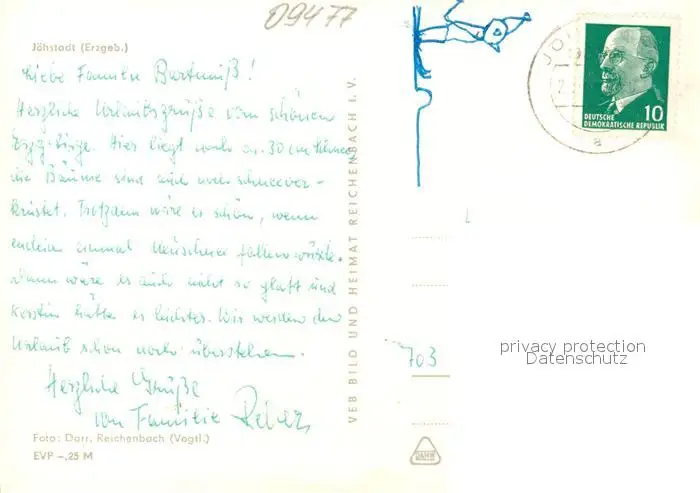 09477
Jöhstadt (Erzgeb.)
Liebe Familie Bartmuß!
Herzliche Urlaubsgrüße vom schönen
Erzgebirge. Hier liegt noch ca. 30 cm Schnee
die Bäume sind auch noch schneever-
krustet. Trotzdem wäre es schön, wenn
endlich einmal Neuschnee fallen würde.
Dann wäre es auch nicht so glatt und
Kerstin hätte es leichter. Wir werden den
Urlaub schon noch überstehen.
Herzliche Grüße
von Familie
Foto: Darr, Reichenbach (Vogtl.)
EVP -,25 M
VEB BILD UND HEIMAT REICHENBACH I. V.
703
DEUTSCHE
DEMOKRATISCHE REPUBLIK
10
JÖ
a
privacy protection
Datenschutz